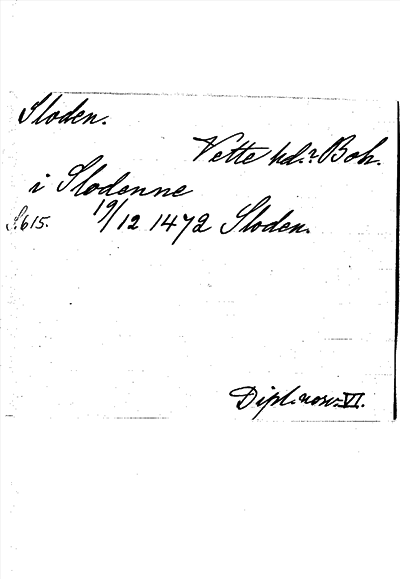 Sloden.
Vette hd.r Boh.
i Slodenne
S. 615. 19/12 1472 Sloden.
Dipl. norv. VI.